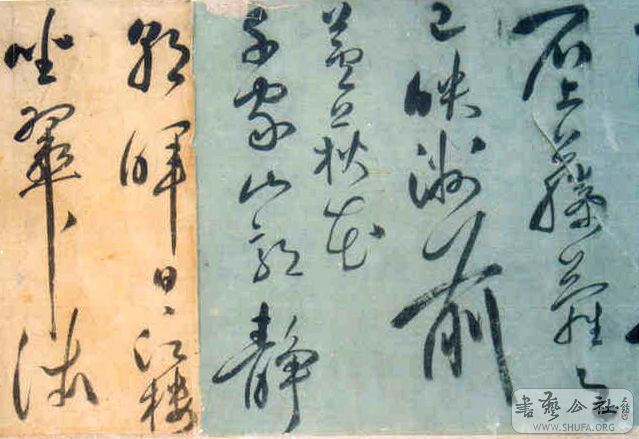 石上藤蘿
已映洲前
蘆荻花
千家山郭靜
朝暉日〻江樓
坐翠微
書藝公社
WWW.SHUFA.ORG